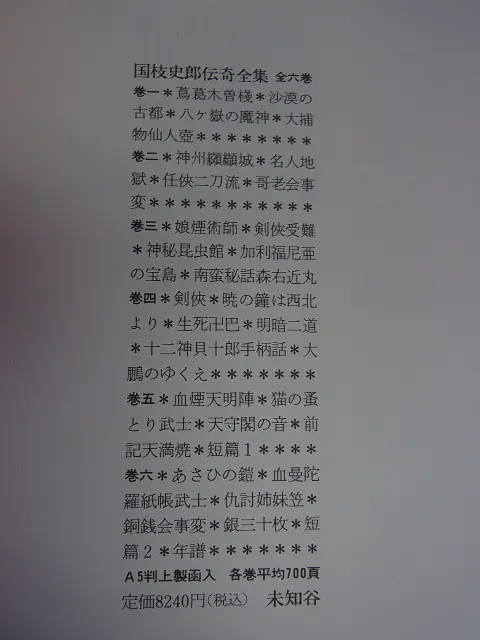 国枝史郎伝奇全集 全六巻
巻一＊蔦葛木曽棧＊沙漠の
古都＊八ヶ嶽の魔神＊大捕
物仙人壺＊＊＊＊＊＊＊＊
巻二＊神州纐纈城＊名人地
獄＊任侠二刀流＊哥老会事
変＊＊＊＊＊＊＊＊＊＊＊
巻三＊娘煙術師＊剣侠受難
＊神秘昆虫館＊加利福尼亜
の宝島＊南蛮秘話森右近丸
巻四＊剣侠＊暁の鐘は西北
より＊生死卍巴＊明暗二道
＊十二神貝十郎手柄話＊大
鵬のゆくえ＊＊＊＊＊＊＊
巻五＊血煙天明陣＊猫の蚤
とり武士＊天守閣の音＊前
記天満焼＊短篇1＊＊＊＊
巻六＊あさひの鎧＊血曼陀
羅紙帳武士＊仇討姉妹笠＊
銅銭会事変＊銀三十枚＊短
篇2＊年譜＊＊＊＊＊＊＊
A5判上製函入 各巻平均700頁
定価8240円(税込) 未知谷